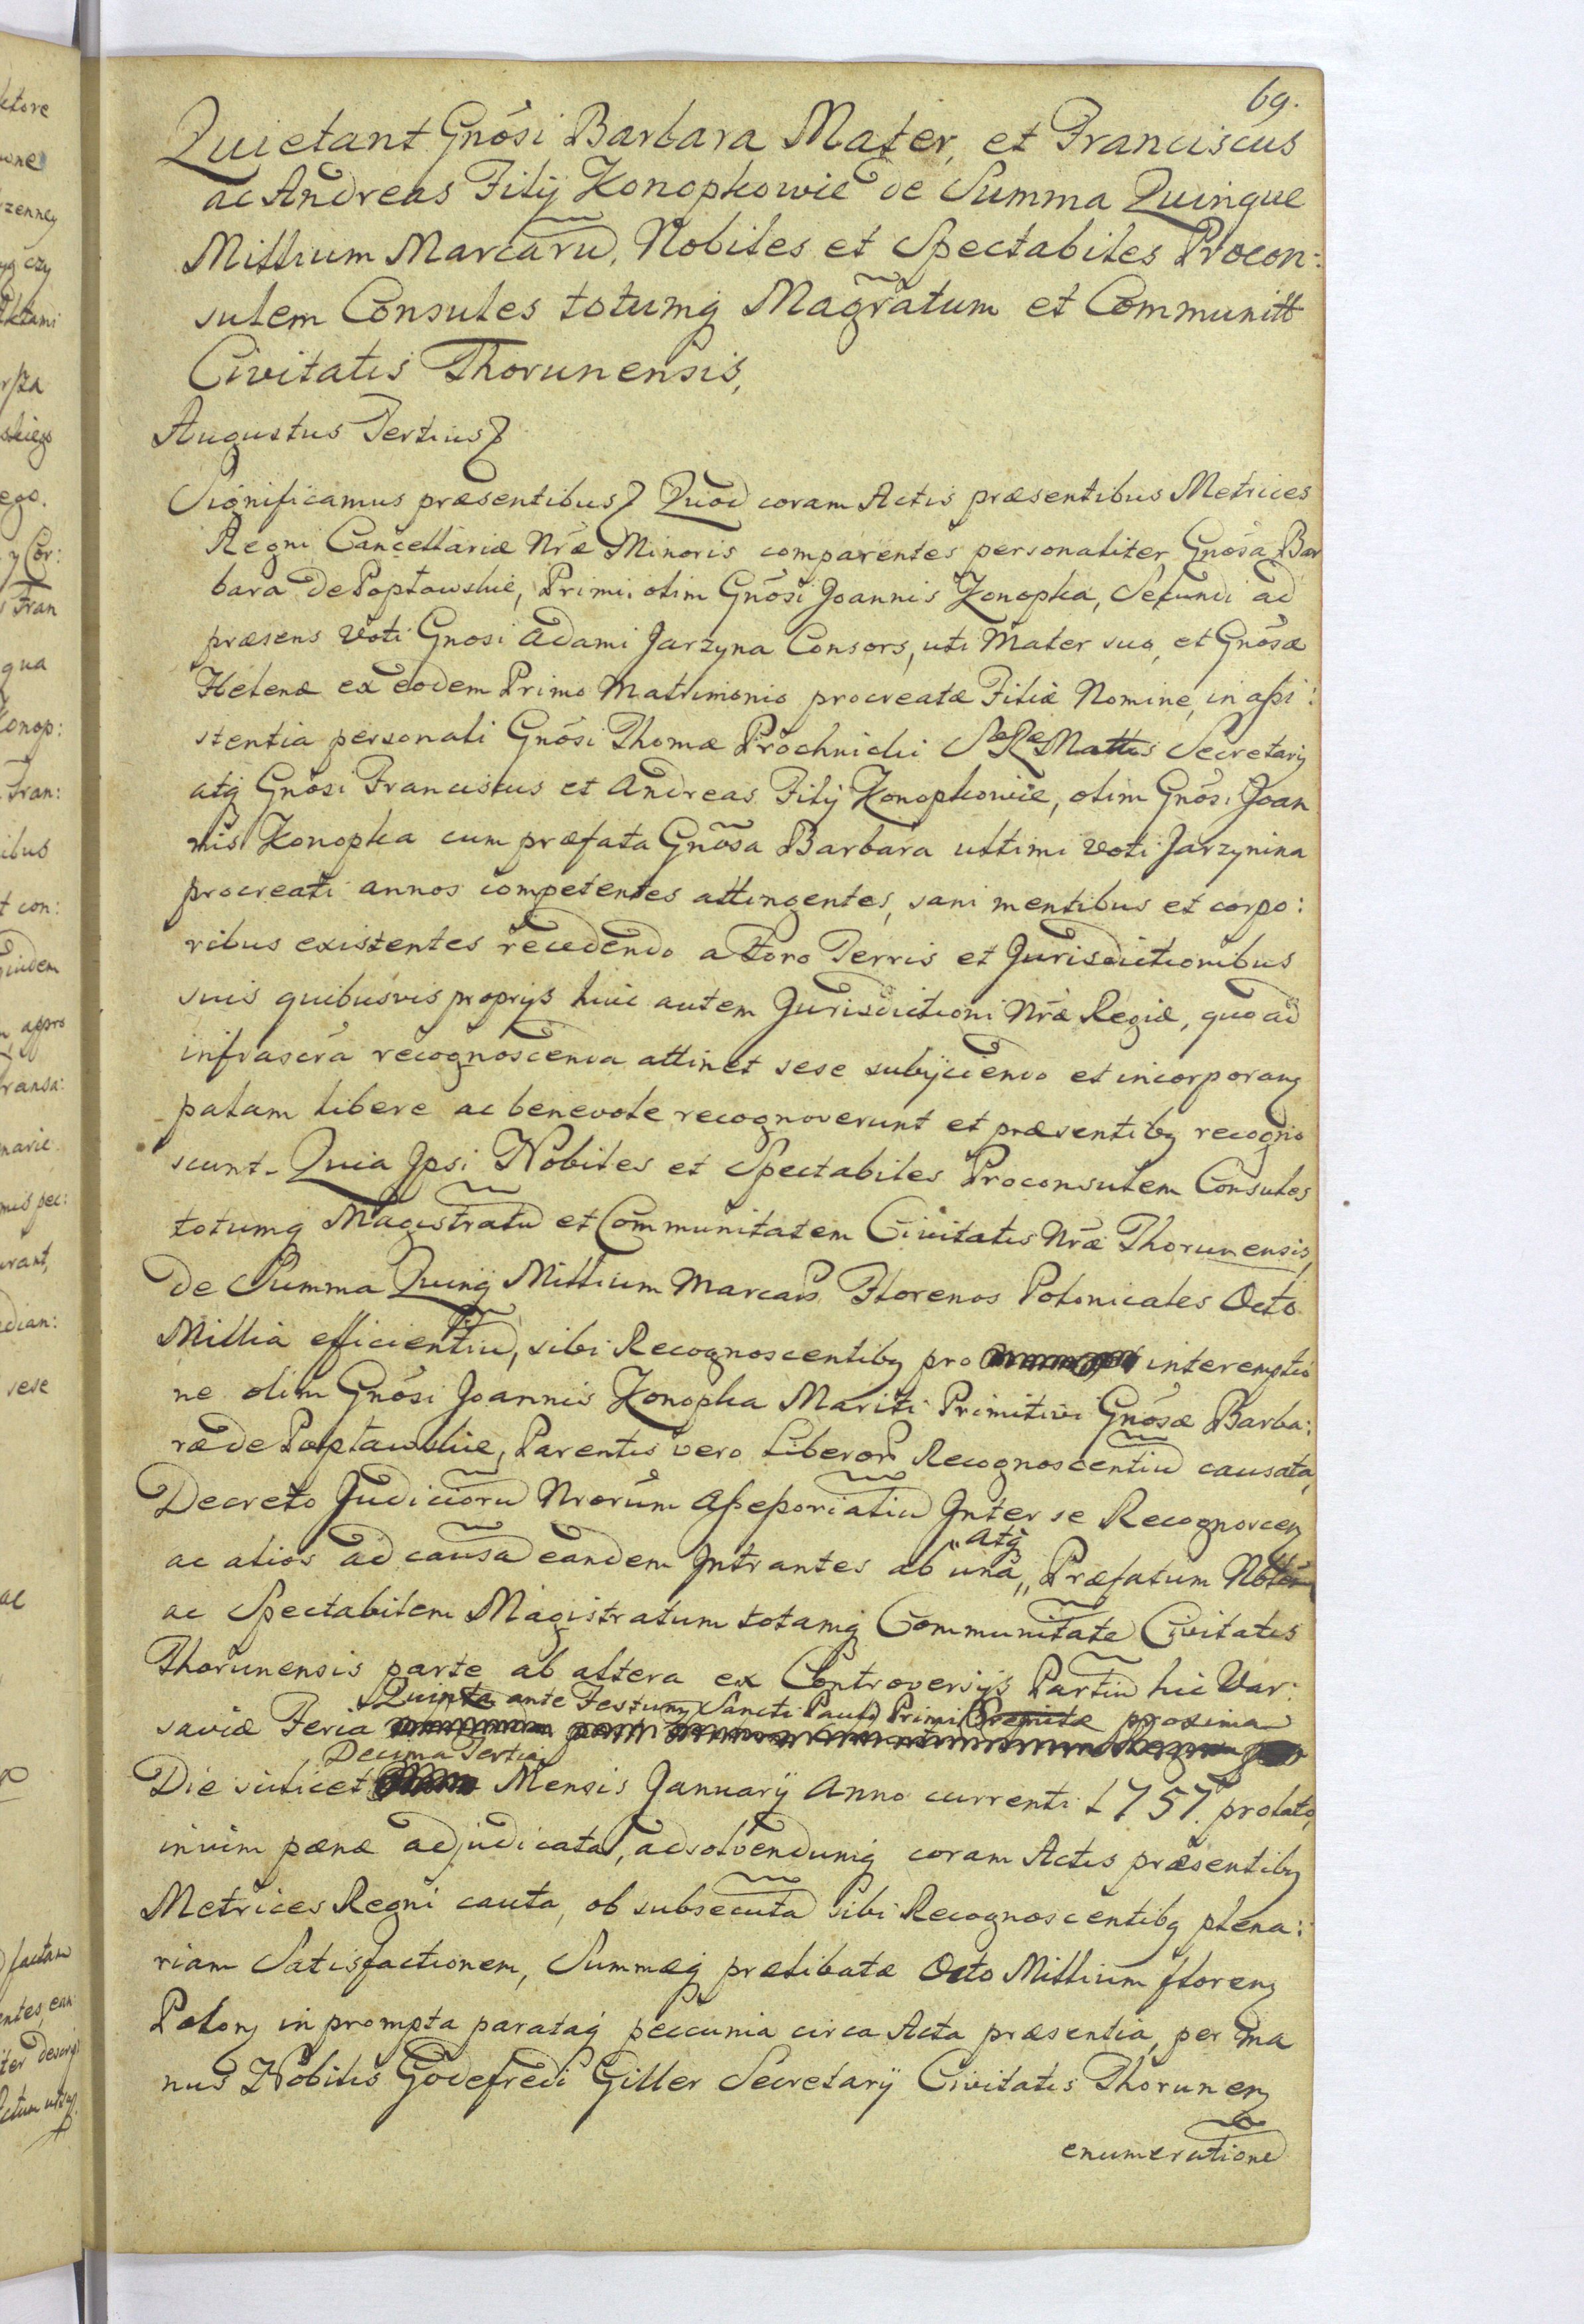 69.
Quietant Gnosi Barbara Mater, et Franciscus
ac Andreas Filij Konopkowie de Summa Quinque
Millium Marcaru, Nobiles et Spectabiles Procon:
sulem Consules totumq Magratum et Communitt
Civitatis Thorunensis,
Augustus Tertius
Significamus præsentibus Quod coram Actis præsentibus Metrices
Regni Cancellariæ Nræ Minoris comparentes personaliter Gnosa Bar
bara de Popławskie, Primi olim Gnosi Joannis Konopka, Secundi ad
præsens Voti Gnosi Adami Jarzyna Consors, uti Mater suo, et Gnosæ
Helenæ ex eodem Primo Matrimonio procreatæ Filiæ Nomine, in assi:
stentia personali Gnosi Thomæ Prochnicki SæRæ Mattis Secretarij
atq Gnosi Franciscus et Andreas Filij Konopkowie, olim Gnosi Joan
nis Konopka cum præfata Gnosa Barbara ultimi Voti Jarzynina
procreati annos competentes attingentes, sani mentibus et corpo:
ribus existentes recedendo a Foro Terris et Jurisdictionibus
suis quibusvis proprys huic autem Jurisdictioni Nræ Regiæ, quo ad
infrascra recognoscenda attinet sese subijciendo et incorporang
palam libere ac benevole recognoverunt et præsentibq recogno
scunt. Quia Ipsi Nobiles et Spectabiles Proconsulem Consules
totumq Magistratu et Communitatem Civitatis Nræ Thorunensis,
De Summa Quinq Millium Marcar Florenos Polonicales Octo
Millia efficientiu, sibi Recognoscentibq pro interemptio
ne olim Gnosi Joannis Konopka Mariti Primitivi Gnosæ Barba:
ræ de Popławskie, Parentis vero Liberor Recognoscentiu causata,
Decreto Judicioru Nrorum Assessorialiu Inter se Recognoscen
ac alios ad causa eandem Intrantes ab una, atq Præfatum Nobilem
ac Spectabilem Magistratum totamq Communitate Civitatis
Thorunensis parte ab altera ex Controversijs Partiu hic Var:
saviæ Feria Quinta ante Festum Sancti Pauli Primi Eremitæ proxima
Die scilicet Decima Tertia Mensis January Anno currenti 1757. prolato,
in vim pænæ adjudicata, adsolvendumq coram Actis præsentibq
Metrices Regni cauta, ob subsecuta sibi Recognoscentibq plena:
riam Satisfactionem, Summæq prælibatæ Octo Millium floreng
Polong in prompta parataq peccunia circa Acta præsentia, per ma
nus Nobilis Godefredi Giller Secretarij Civitatis Thoruneng
enumeratione